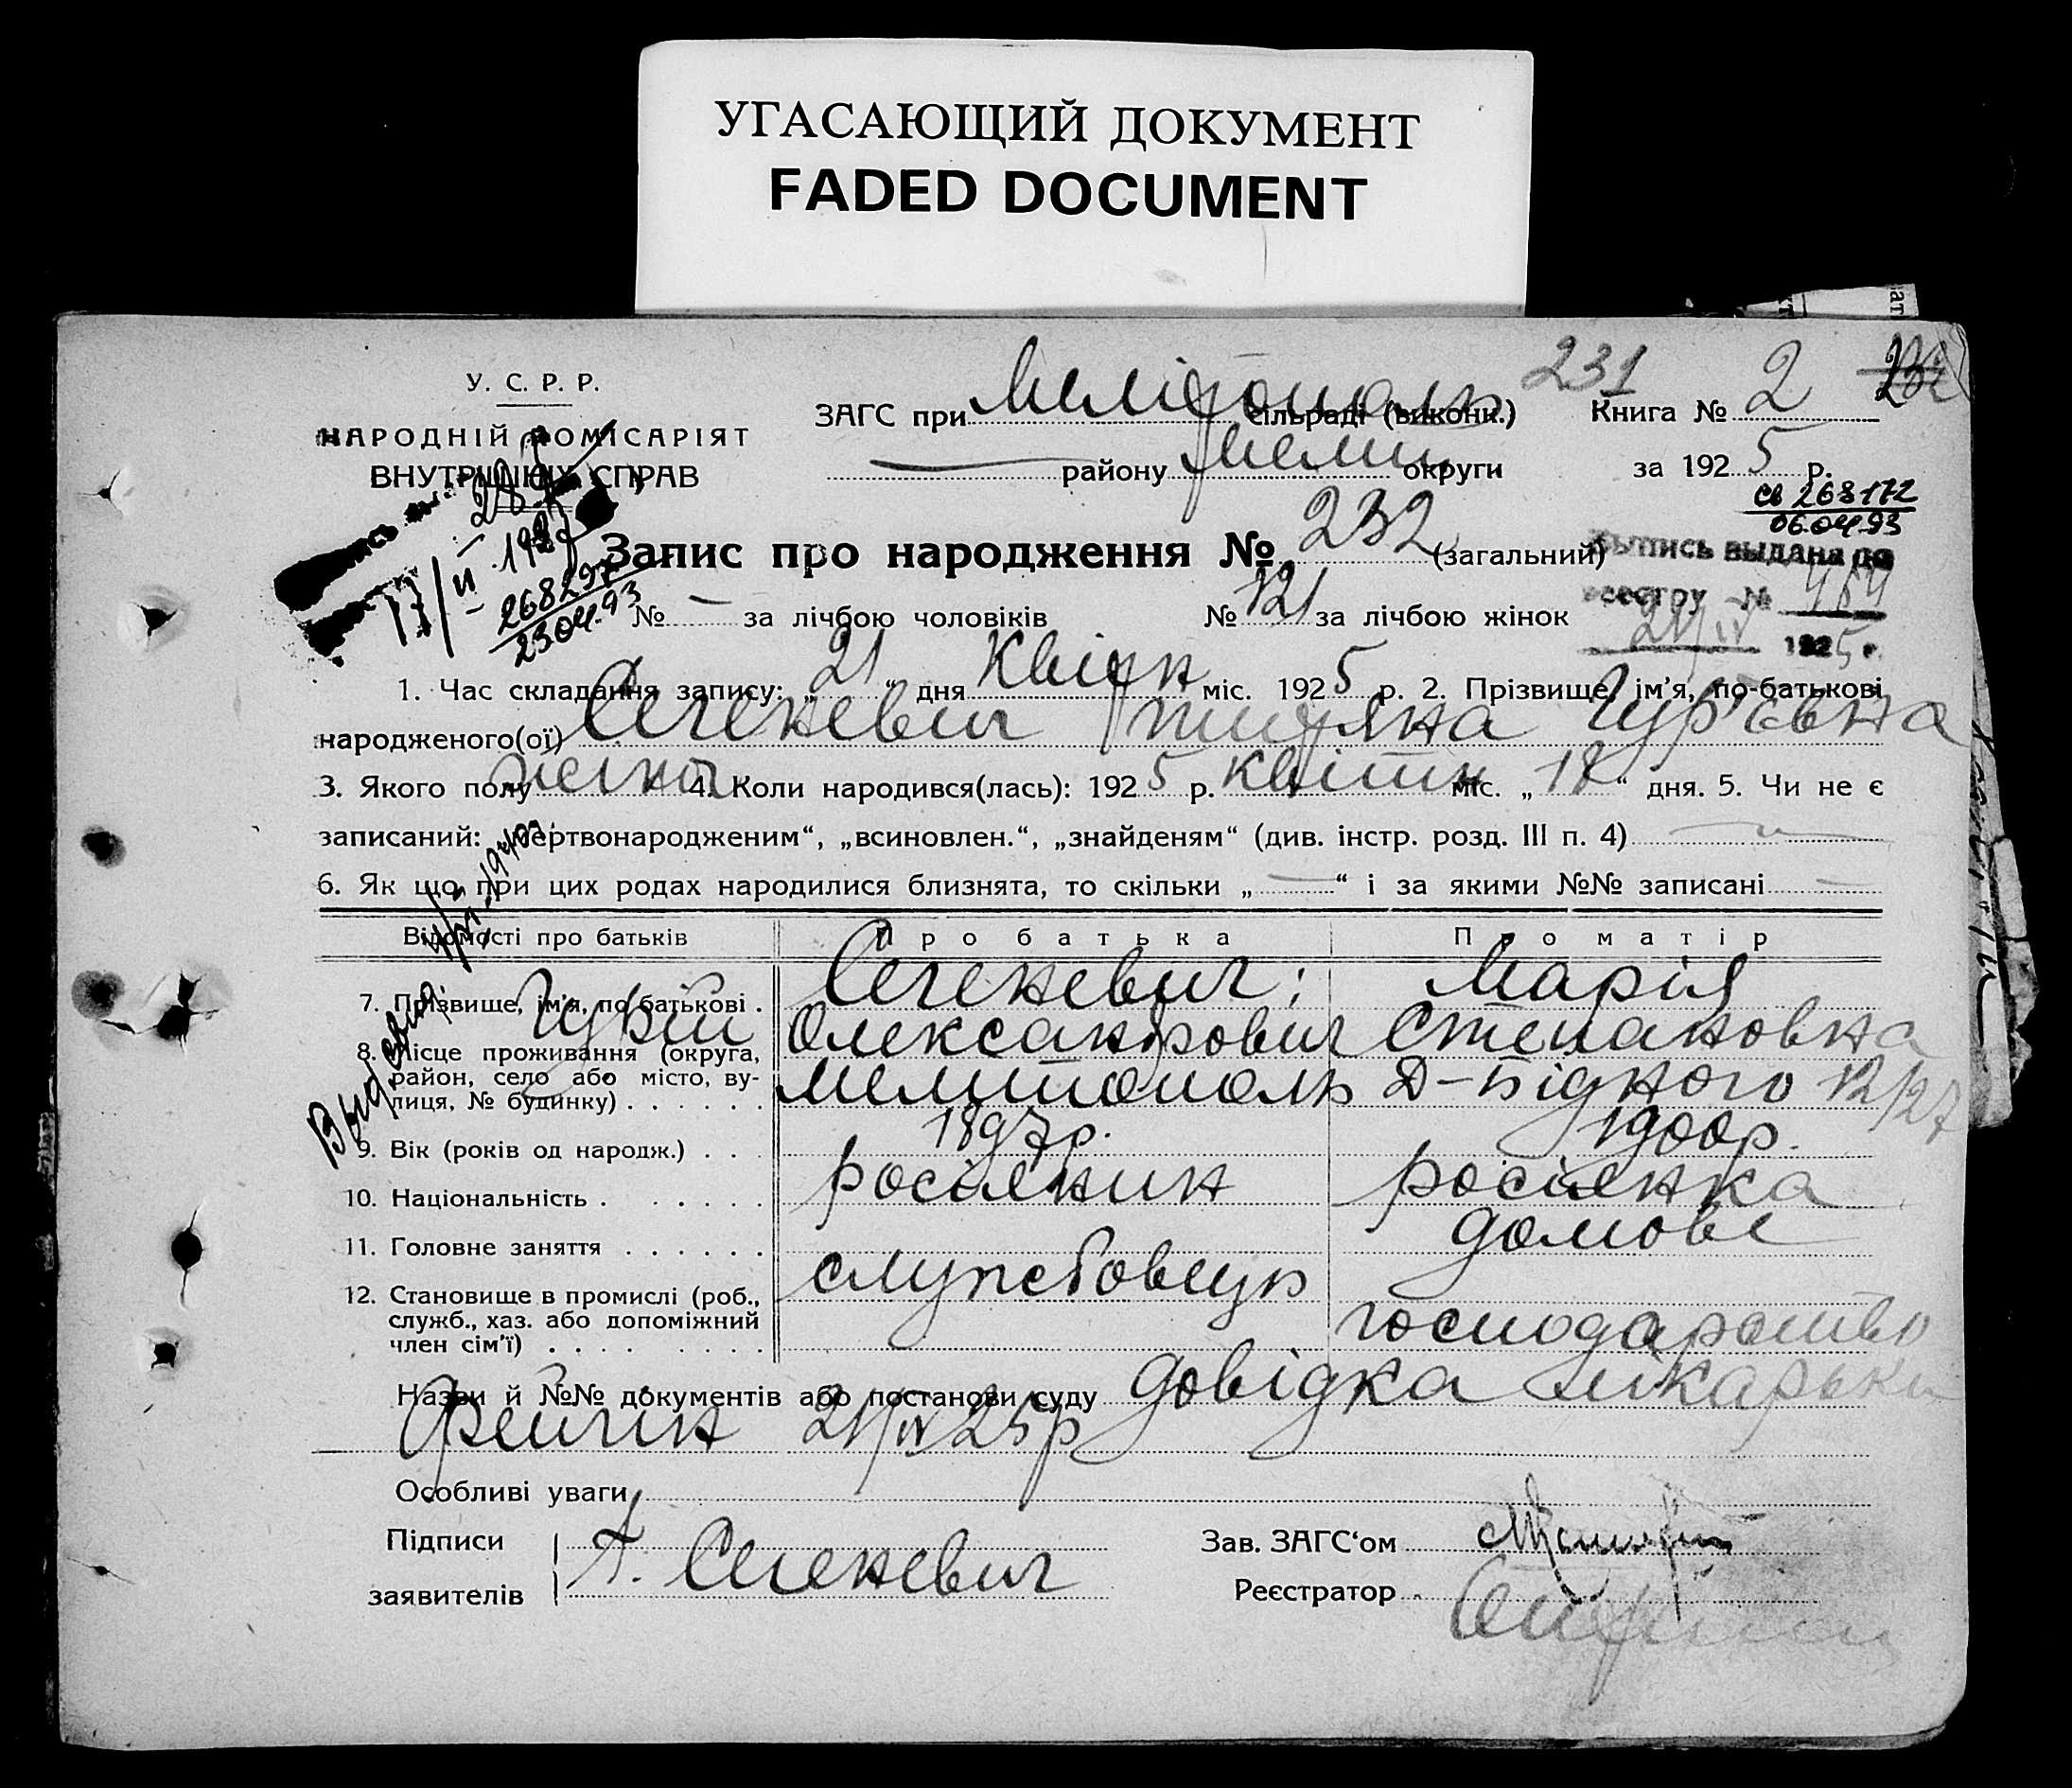 УГАСАЮЩИЙ ДОКУМЕНТ
FADED DOCUMENT
231
232
У. С. Р. Р.
НАРОДНІЙ КОМІСАРІЯТ
ВНУТРІШНІХ СПРАВ
ЗАГС при Мелітополь сільраді (виконк.) Книга № 2
— району Мелит округи за 1925 р.
св 268172
06.04.93
Запис про народження № 232 (загальний)
Выпись выдана по
реестру № 484
21/IV 1925 г.
268297
23.04.93
№ — за лічбою чоловіків № 121 за лічбою жінок
1. Час складання запису: „21“ дня Квітн міс. 1925 р. 2. Прізвище, ім’я, по-батькові
народженого(ої) Сегеневич Гур'евна
3. Якого полу жіноч 4. Коли народився(лась): 1925 р. квітн міс. „18“ дня. 5. Чи не є
записаний: „мертвонародженим“, „всиновлен.“, „знайденям“ (див. інстр. розд. III п. 4)
6. Як що при цих родах народилися близнята, то скільки „—“ і за якими №№ записані —
Відомості про батьків Про батька Про матір
7. Прізвище, ім’я, по-батькові . Сегеневич; Марія
Гурій Олександрович Степановна
8. Місце проживання (округа,
район, село або місто, ву-
лиця, № будинку) . . . . . . Мелитополь Д-Бідного 12/27
9. Вік (років од народж.) . . . 1897р. 1900р.
10. Національність . . . . . . росіянин росіянка
11. Головне заняття . . . . . . домове
12. Становище в промислі (роб.,
служб., хаз. або допоміжний
член сім’ї) . . . . . . . . службовець господарство
Назви й №№ документів або постанови суду довідка лікарьки
21/IV 25р
Особливі уваги
Підписи
заявителів Г. Сегеневич
Зав. ЗАГС‘ом
Реєстратор